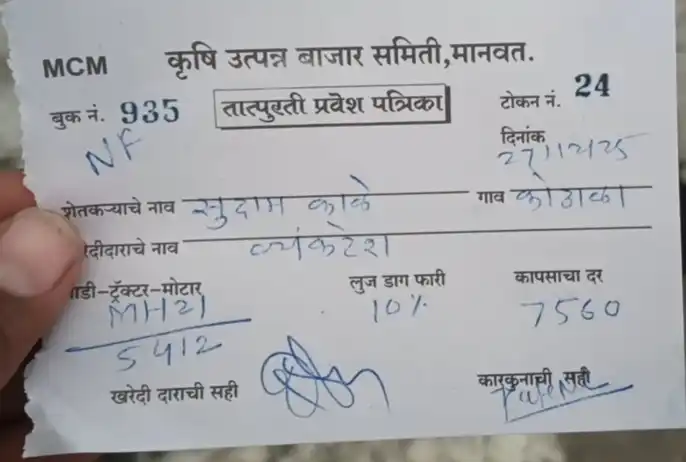 MCM कृषि उत्पन्न बाजार समिती,मानवत.
बुक नं. 935 तात्पुरती प्रवेश पत्रिका टोकन नं. 24
NF दिनांक 27/12/25
शेतकऱ्याचे नाव सुदाम काळे गाव
रेदीदाराचे नाव व्यंकटेश
ाडी–ट्रॅक्टर–मोटार लुज डाग फारी कापसाचा दर
MH21 10% 7560
5412
खरेदी दाराची सही कारकुनाची सही